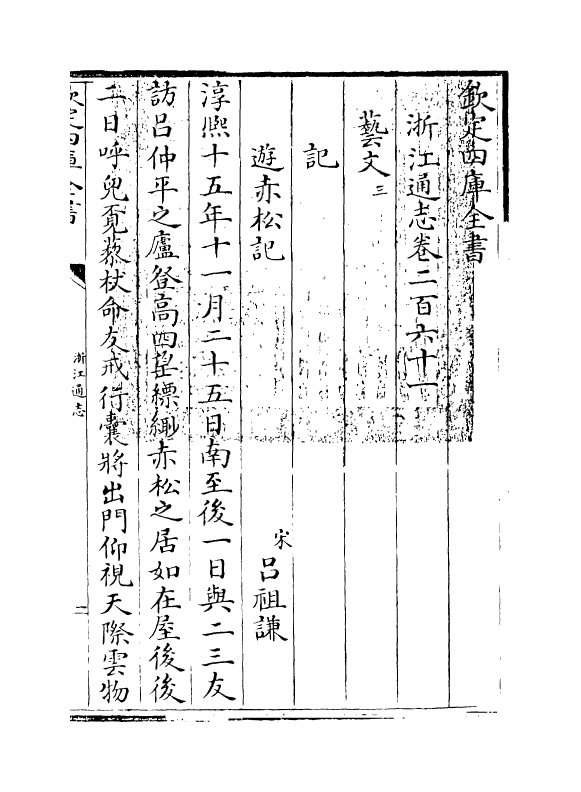 欽定四庫全書
浙江通志卷二百六十一
藝文三
記
遊赤松記
宋呂祖謙
淳熙十五年十一月二十五日南至後一日與二三友
訪呂仲平之廬登高四望縹緲赤松之居如在屋後後
二日呼兒覔藜杖命友戒行囊將出門仰視天際雲物
欽定四庫全書
浙江通志